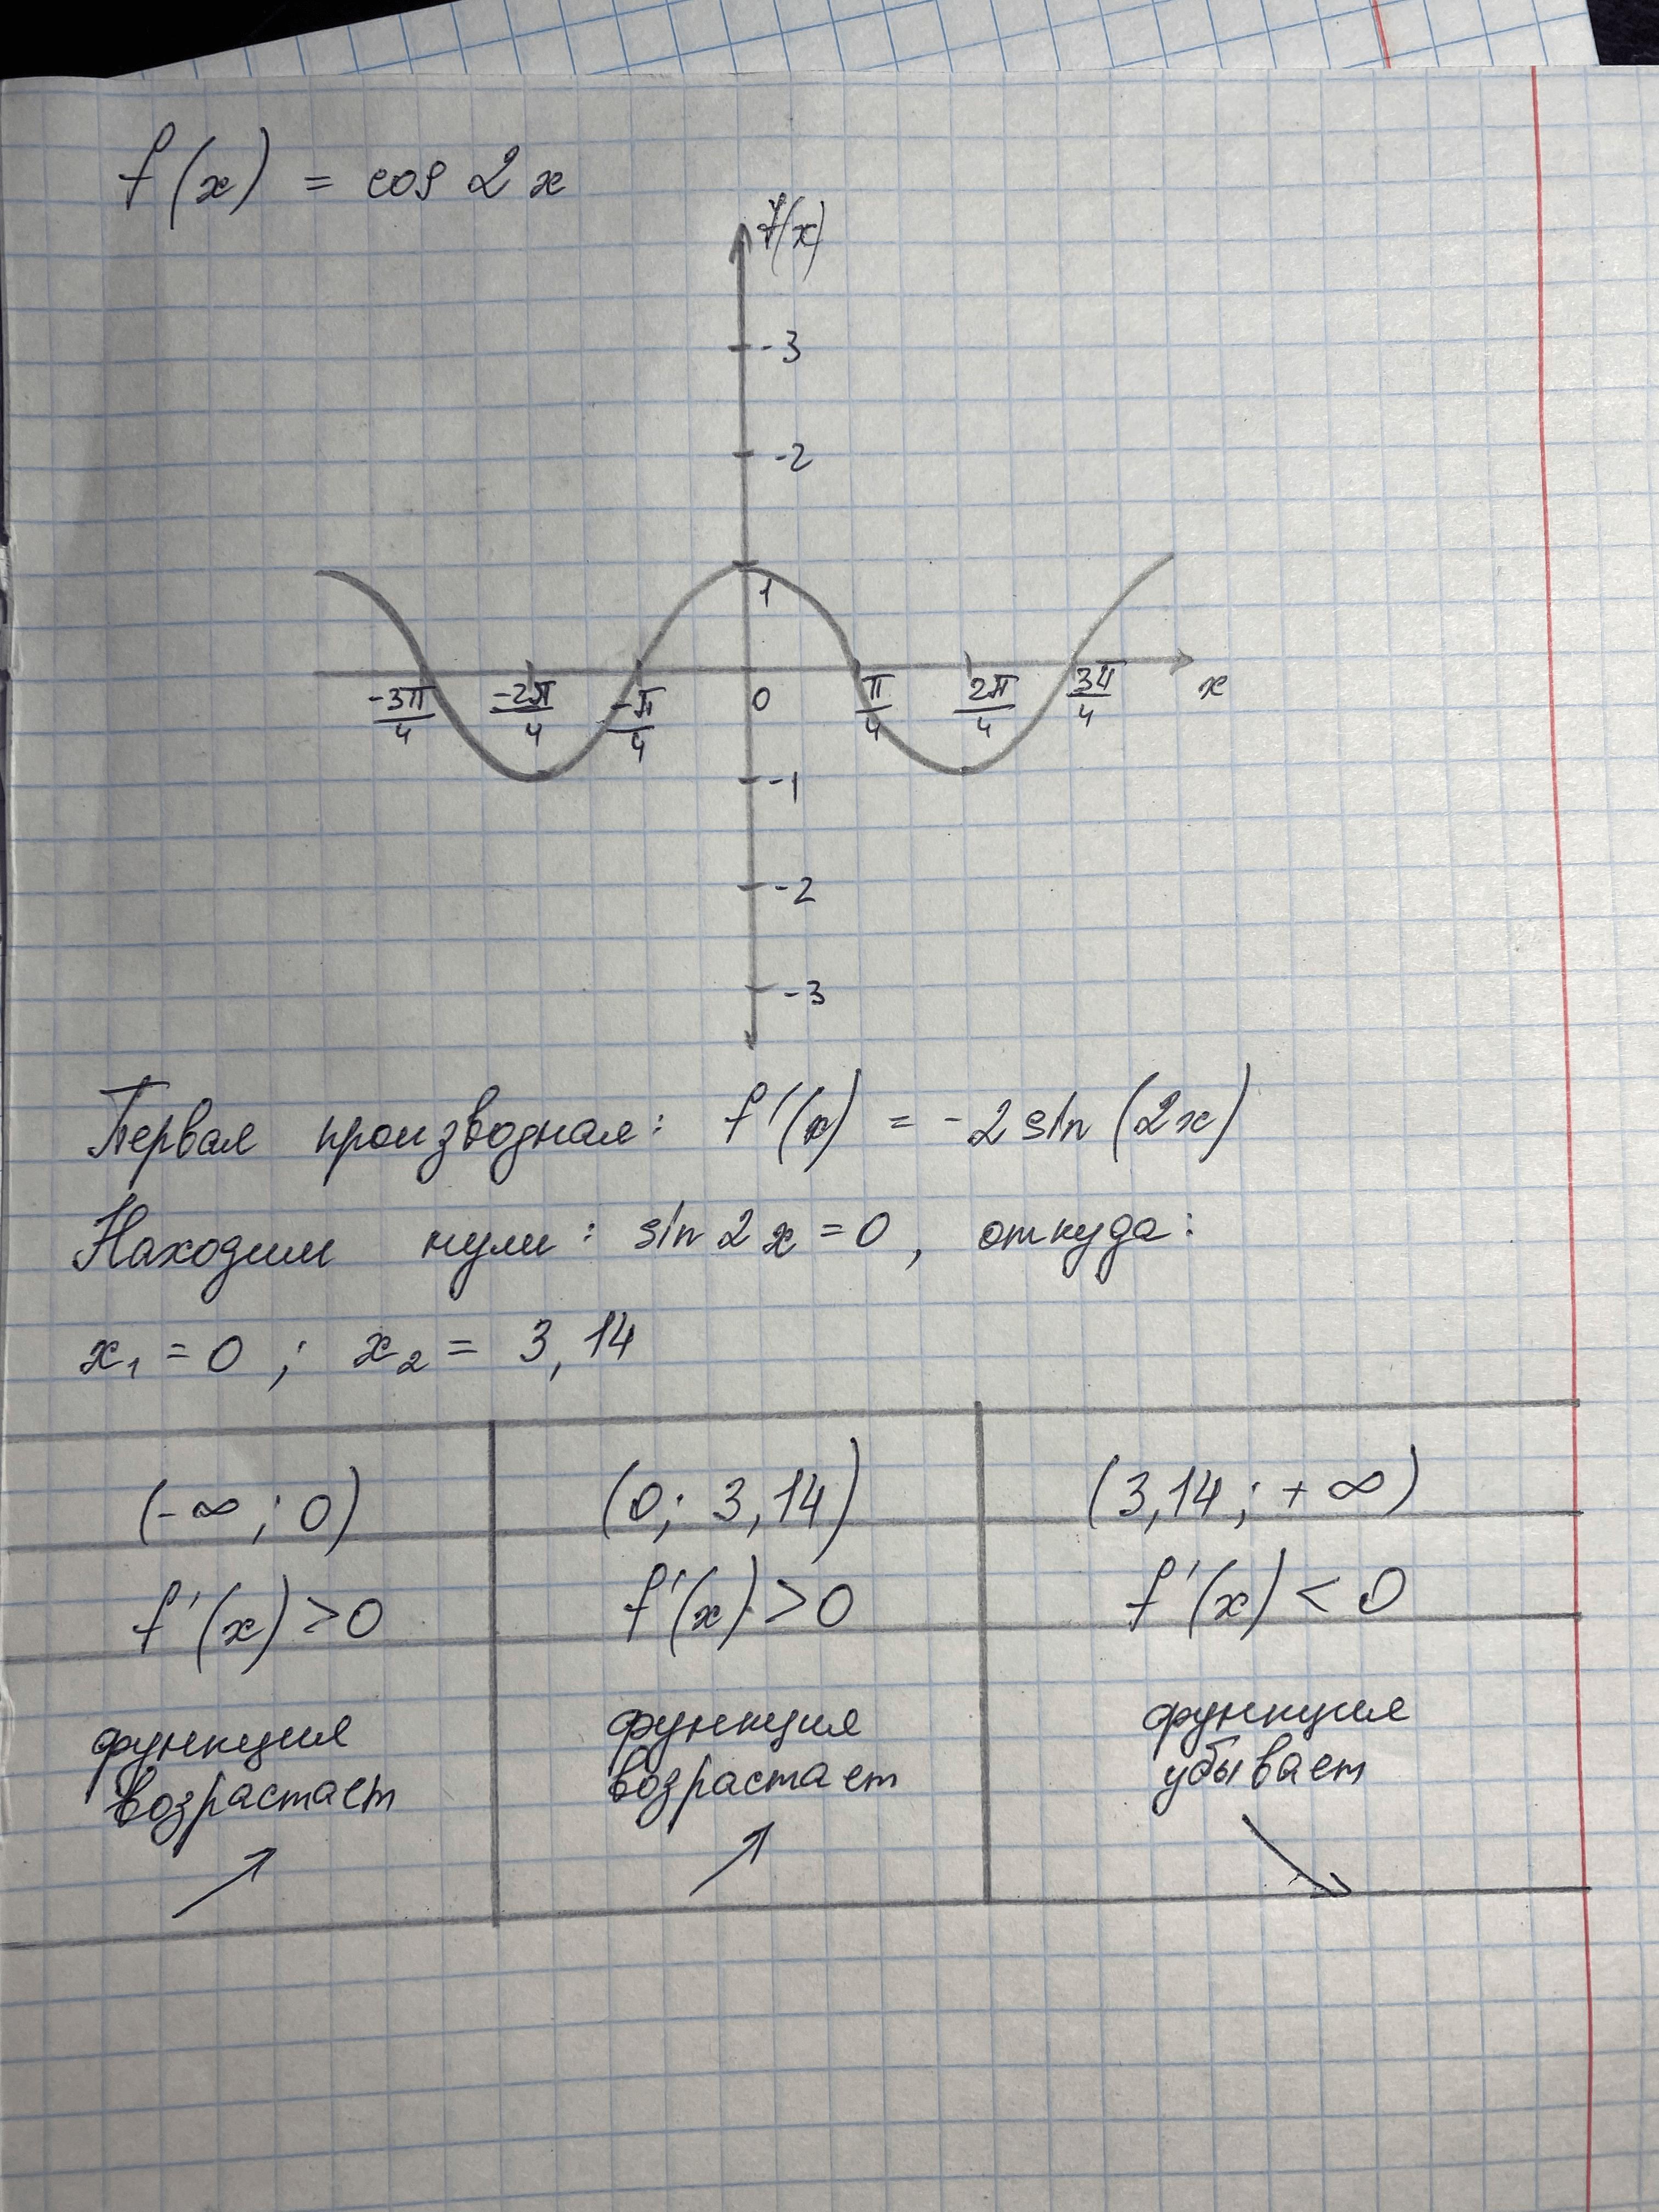 f(x) = cos 2x
f(x)
-3
-2
1
-3π/4 -2π/4 -π/4 0 π/4 2π/4 3π/4 x
-1
-2
-3
Первая производная: f'(x) = -2 sin (2x)
Находим нули: sin 2x = 0, откуда:
x₁ = 0 ; x₂ = 3,14
(-∞ ; 0) (0; 3,14) (3,14 ; +∞)
f'(x) > 0 f'(x) > 0 f'(x) < 0
функция функция функция
возрастает возрастает убывает